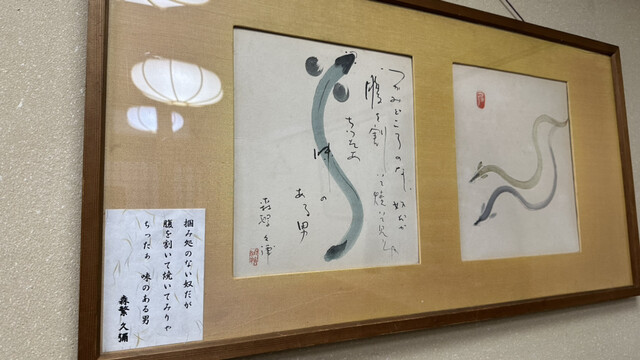 つかみどころのない奴だが
腹を割いて焼いて見りゃ
ちったあ
味の
ある男
森繁久彌
掴み処のない奴だが
腹を割いて焼いてみりや
ちったぁ 味のある男
森繁 久彌